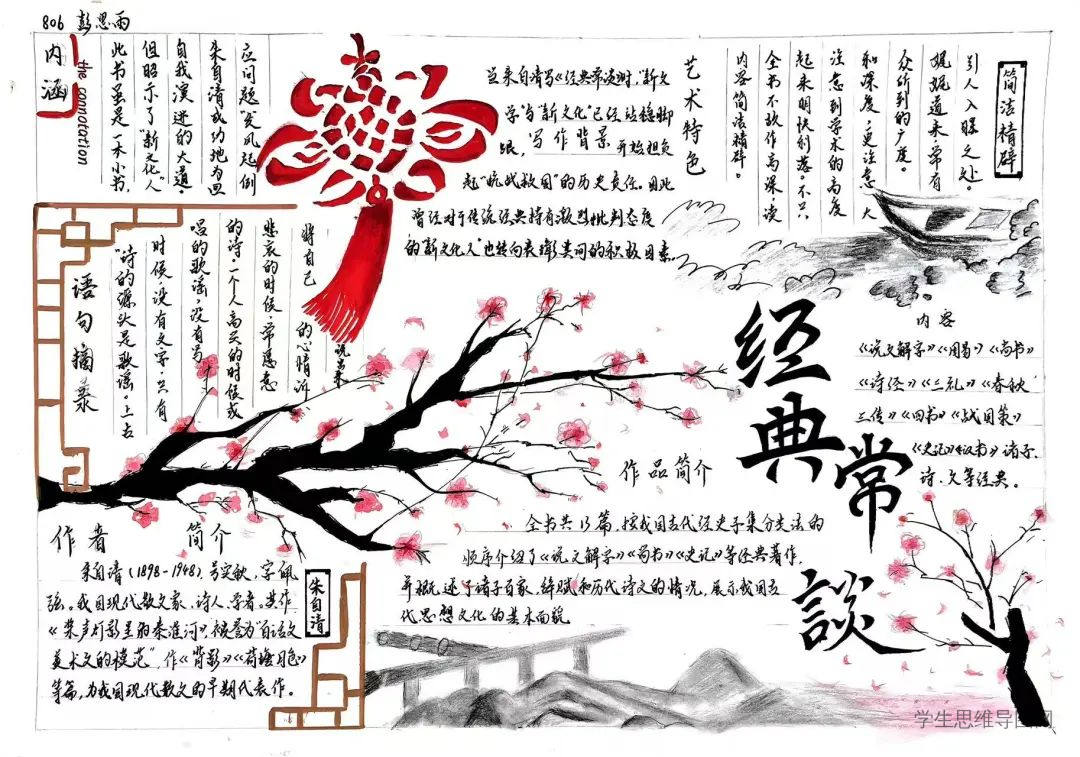 806 彭思雨
内涵
the connotation
此书虽是一本小书,
但昭示了"新文化人"
自我演进的大道。
朱自清成功地为回
应问题"发凡起例
当朱自清写《经典常谈》时,"新文
学"当"新文化"已经站稳脚
跟,写作背景开始担负
起"抗战救国"的历史责任。因此
曾经对于传统经典持有激烈批判态度
的"新文化人"也转向表彰其间的积极因素。
艺术特色
内容简洁精辟。
全书不故作高深,读
起来明快利落。不只
注意到学术的高度
和深度,更注意大
众所到的广度。
娓娓道来,常有
引人入胜之处。
简洁精辟
语句摘录
"诗的源头是歌谣。上古
时候,没有文字,只有
唱的歌谣,没有写
的诗。一个人高兴的时候或
悲哀的时候,常愿意
将自己的心情诉
说出来
经典常談
内容
《说文解字》《周易》《尚书》
《诗经》《三礼》《春秋
三传》《四书》《战国策》
《史记》《汉书》诸子、
诗、文等经典。
作品简介
全书共13篇,按我国古代经史子集分类法的
顺序介绍了《说文解字》《尚书》《史记》等经典著作,
并概述了诸子百家、辞赋和历代诗文的情况,展示我国古
代思想文化的基本面貌
作者简介
朱自清(1898-1948),号实秋,字佩
弦。我国现代散文家、诗人、学者。其作
《桨声灯影里的秦淮河》,被誉为"白话文
美术文的模范",作《背影》《荷塘月色》
等篇,为我国现代散文的早期代表作。
朱自清
学生思维导图网